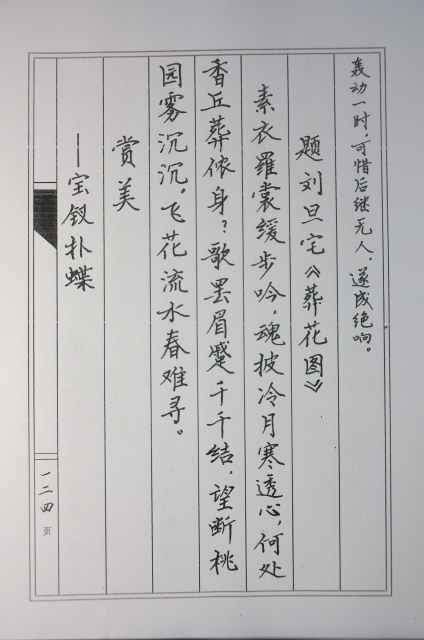 轰动一时，可惜后继无人，遂成绝响。
题刘旦宅《葬花图》
素衣罗裳缓步吟，魂披冷月寒透心，何处
香丘葬侬身？歌罢眉蹙千千结，望断桃
园雾沉沉，飞花流水春难寻。
赏美
——宝钗扑蝶
一二四页